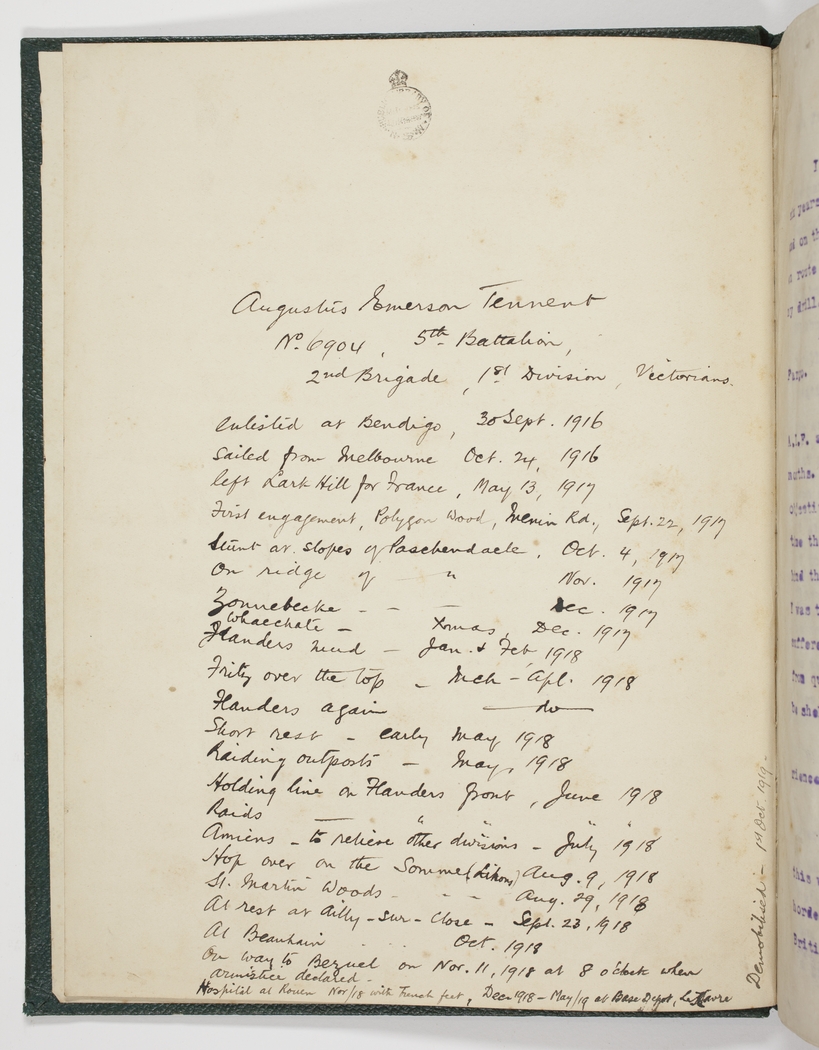 Augustus Emerson Tennent
No. 6904, 5th Battalion,
2nd Brigade, 1st Division, Victorians.
enlisted at Bendigo, 30 Sept. 1916
sailed from Melbourne Oct. 24, 1916
left Lark Hill for France, May 13, 1917
First engagement, Polygon Wood, Menin Rd., Sept. 22, 1917
Stunt at slopes of Paschendaele, Oct. 4, 1917
On ridge of — " Nov. 1917
Zonnebecke - - — Dec. 1917
Whaechate — Xmas, Dec. 1917
Flanders mud — Jan. & Feb 1918
Fritz over the top — Mch - Apl. 1918
Flanders again — do —
Short rest — early May 1918
Raiding outposts — May, 1918
Holding line on Flanders front, June 1918
Raids — " " "
Amiens — to relieve other divisions — July 1918
Hop over on the Somme (Lihons) Aug. 9, 1918
St. Martin Woods - - - Aug. 29, 1918
At rest at Ailly-sur-Close — Sept. 23, 1918
At Beauhain . . . Oct. 1918
On way to Bezuel on Nov. 11, 1918 at 8 o'clock when
armistice declared.
Hospital at Rouen Nov/18 with Trench feet, Dec 1918 — May/19 at Base Depot, Le Havre
Demobilised — 1st Oct. 1919.